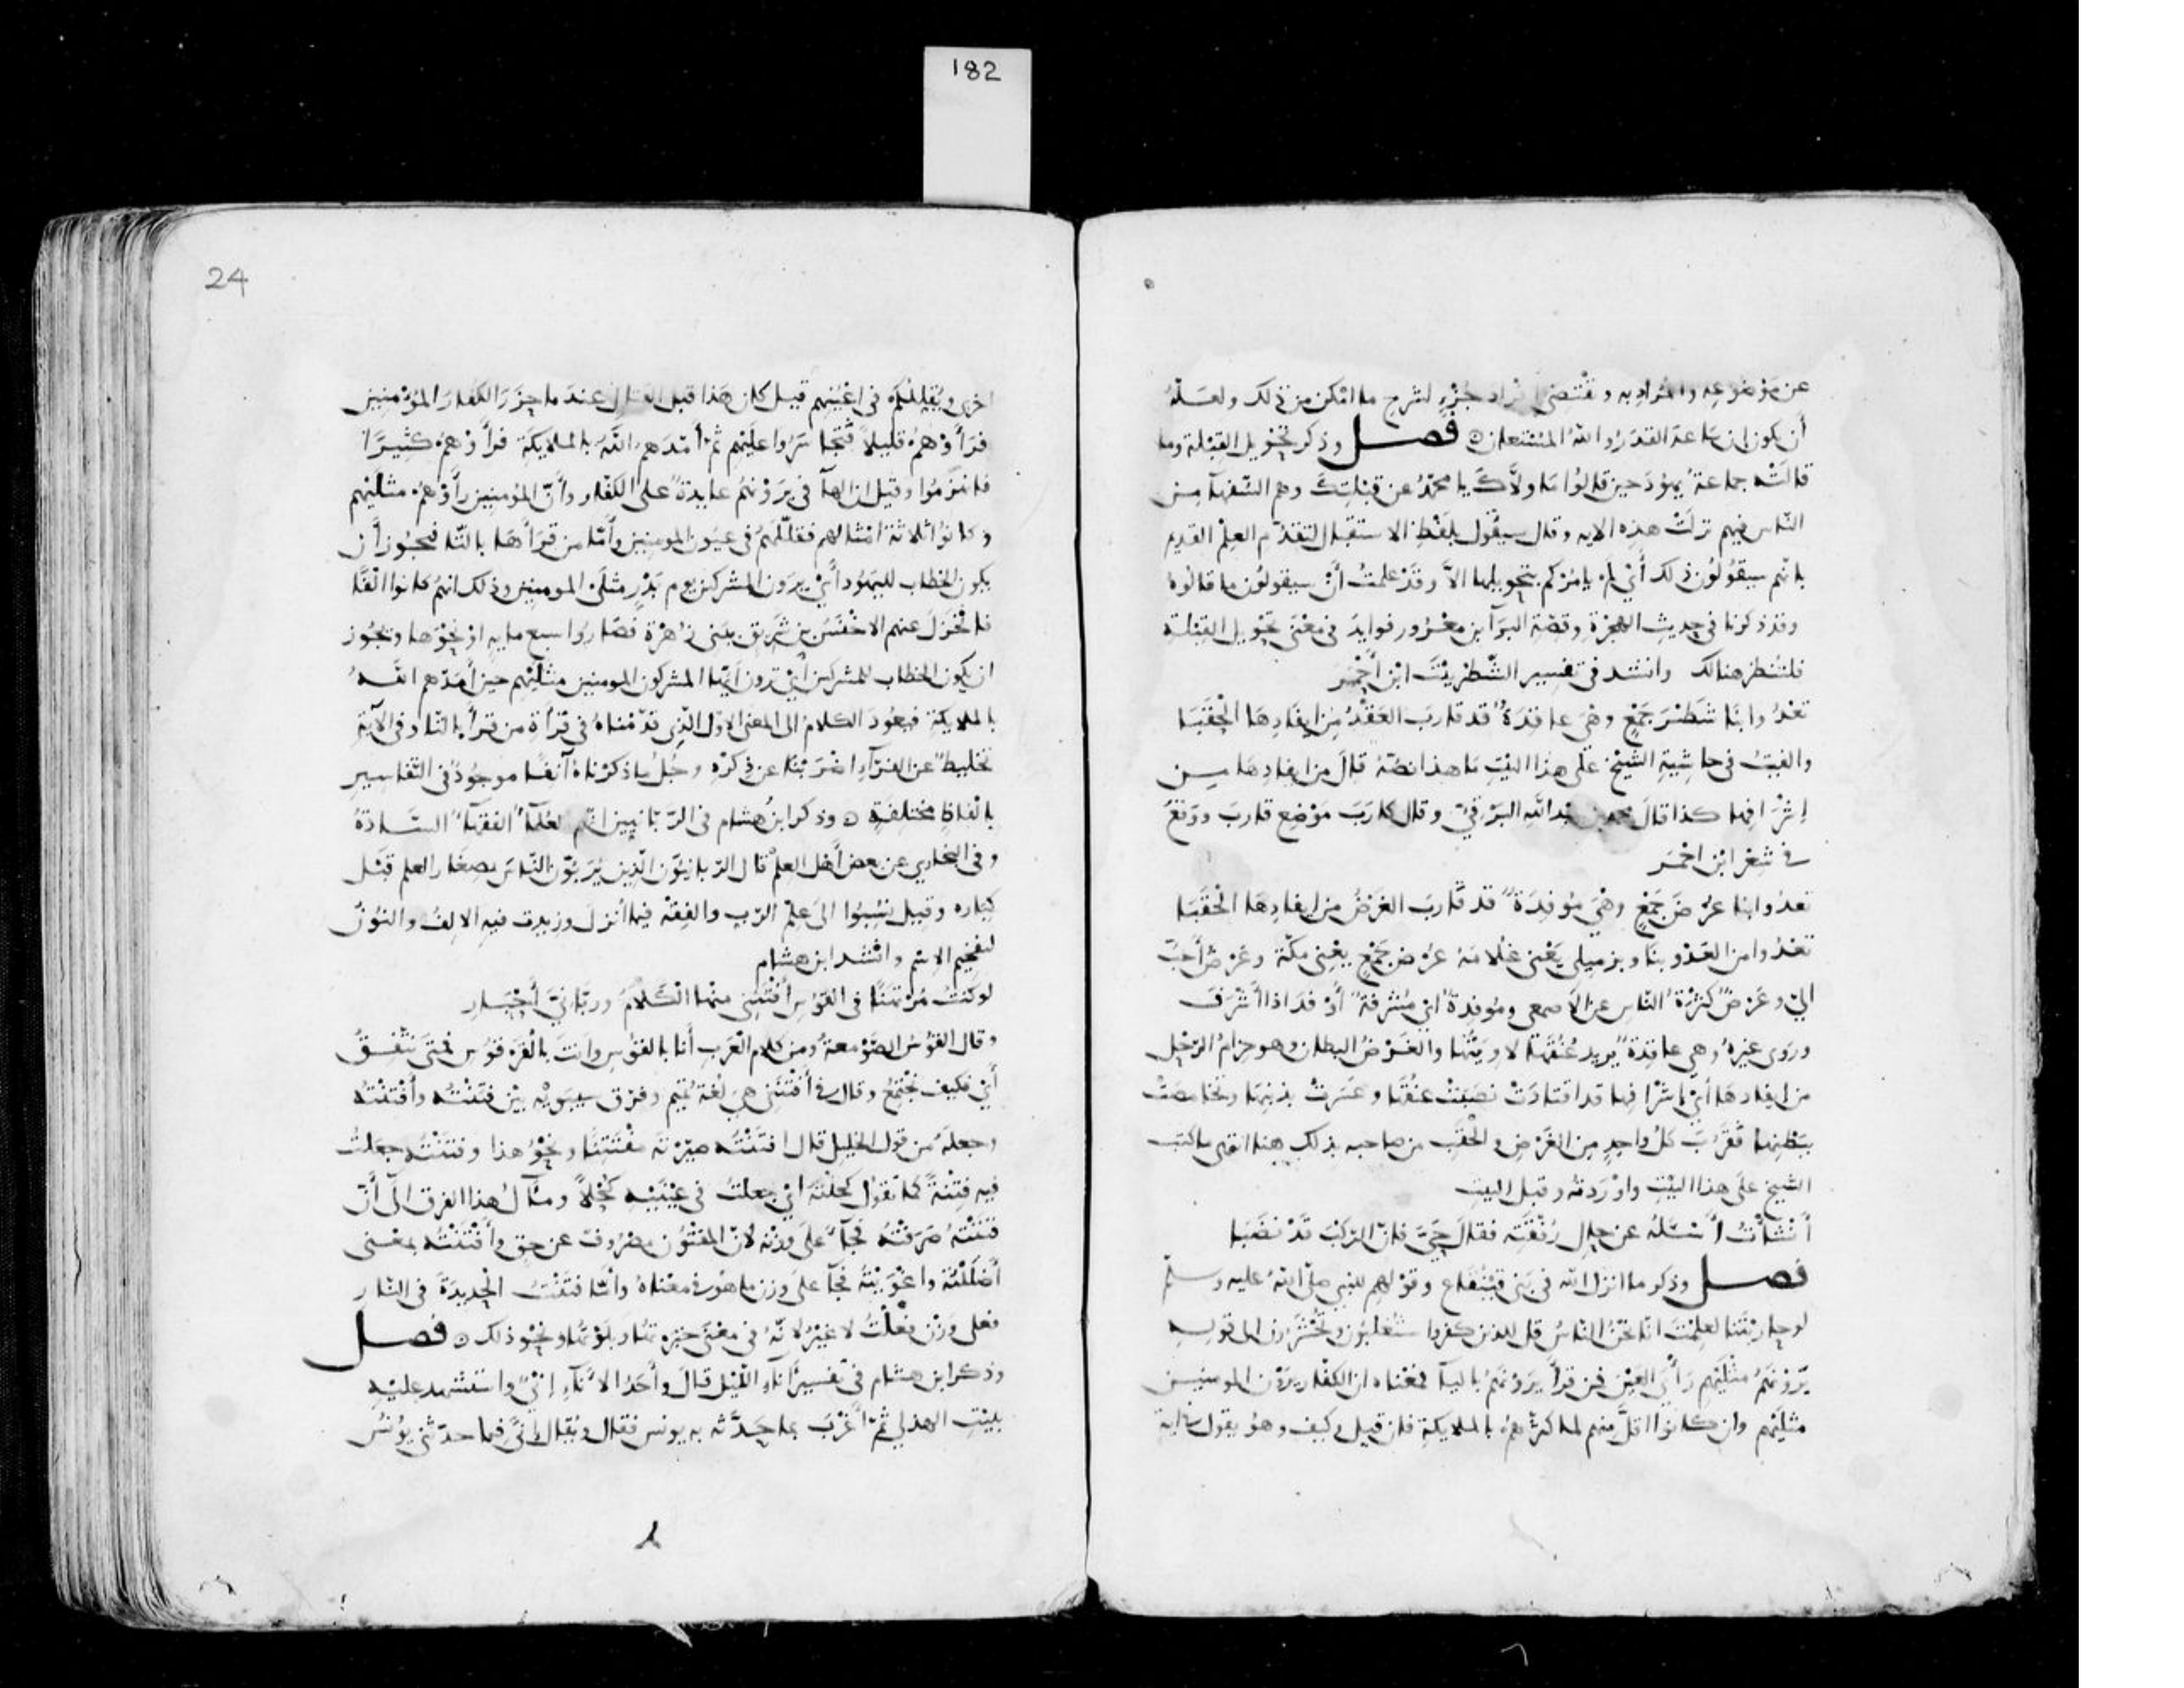 182
عن موضوعه والمراد به وتقتضي افراد جزء لشرح ما امكن من ذلك ولعله
أن يكون ان ساعد القدر والله المستعان فصل وذكر تحويل القبلة وما
قالته جماعة يهود حين قالوا ما ولاك يا محمد عن قبلتك وهم السفهآ من
الناس فيهم نزلت هذه الايه وقال سيقول بلفظ الاستقبال لتقدم العلم القديم
بانهم سيقولون ذلك أي لم يامركم بتحويلها الا وقد علمت أن سيقولون ما قالوه
وقد ذكرنا في حديث الهجرة وقصة البرآ ابن معرور فوايد في معنى تحويل القبلة
فلتنظر هنالك وانشد في تفسير الشطر بيت ابن أحمر
تعدُو ابنا شطر جمع وهي عاقدة قد قارب العقد من ايفادها الحقبا
والفيت في حاشية الشيخ على هذا البيت ما هذا نصه قال من ايفادها من
إشرافها كذا قال بن عبد الله البرقي وقال كارب موضع قارب ووقع
في شعر ابن احمر
تعدوا بنا عرض جمع وهي موفدة قد قارب الغرض من ايفادها الحقبا
تعدوا من العدو بنا وبزميلي يعني غلامه عرض جمع يعني مكة وعرض أحب
الي وعرض كثرة الناس عن الاصمعي وموفدة اي مشرفة أوفد اذا أشرف
وروى غيره وهي عاقدة يريد عنقها لاويتها والغرض البطان وهو حزام الرحل
من ايفادها أي اشرافها قد اقتادت نصبت عنقها وعسرت بذنبها وتخامصت
ببطنها فقرب كل واحد من الغرض والحقب من صاحبه بذلك هنا انتهى ما كتب
الشيخ على هذا البيت واوردته وقبل البيت
أنشأت أسئله عن حال رفقته فقال حي فان الركب قد نصبا
فصل وذكر ما انزل الله في بني قينقاع وقولهم للنبي صلى الله عليه وسلم
لو حاربتنا لعلمت انا نحن الناس قل للذين كفروا ستغلبون وتحشرون الى قوله
يرونهم مثليهم رأي العين فمن قرأ يرونهم باليآ فمعناه ان الكفار يرون المومنين
مثليهم وان كانوا اقل منهم لما كثرهم بالملايكة فان قيل وكيف وهو يقول في اية
24
اخرى ويقللكم في اعينهم قيل كان هذا قبل القتال عند ما حزر الكفار المؤمنين
فرأوهم قليلا فتجاسروا عليهم ثم أمدهم الله بالملايكة فرأوهم كثيرا
فانهزموا وقيل ان الهآ في يرونهم عايدة على الكفار وأن المؤمنين رأوهم مثليهم
وكانوا ثلاثة امثالهم فقللهم في عيون المومنين وأما من قرأها بالتا فيجوز أن
يكون الخطاب لليهود أي يرون المشركين يوم بدر مثلي المومنين وذلك انهم كانوا الفا
فانخزل عنهم الاخنس بن شريق ببني زهرة فصاروا سبع مايه او نحوها ويجوز
ان يكون الخطاب للمشركين أي ترون أيها المشركون المومنين مثليهم حين أمدهم الله
بالملايكة فيعود الكلام الى المعنى الاول الذي قدمناه في قرأة من قرأ بالتا وفي الآية
تخليط عن الفرآء اضربنا عن ذكره وجل ما ذكرناه آنفا موجود في التفاسير
بالفاظ مختلفة وذكر ابن هشام في الربانيين انهم لعلمآ الفقهآ السادة
وفي البخاري عن بعض أهل العلم قال الربانيون الذين يربون الناس بصغار العلم قبل
كباره وقيل نسبوا الى علم الرب والفقه فيما أنزل وزيدت فيه الالف والنون
لتفخيم الاسم وانشد ابن هشام
لو كنت مرتهنا في القوس أفتنني منها الكلام ورباني أحبار
وقال القوس الصومعة ومن كلام العرب أنا بالقوس وانت بالقرقوس فمتى نتفق
أي فكيف نجتمع وقال في أفتنني هي لغة تميم وفرق سيبويه بين فتنته وأفتنته
وجعله من قول الخليل قال افتنته صيرته مفتتنا ونحو هذا وفتنته جعلت
فيه فتنة كما تقول كحلته أي جعلت في عينيه كحلا ومآل هذا الفرق الى أن
فتنته صرفته فجآ على وزنه لان المفتون مصروف عن حق وأفتنته بمعنى
أضللته واغويته فجآ على وزن ما هو في معناه وأما فتنت الحديدة في النار
فعلى وزن فعلت لا غير لانه في معنى خبرتها وبلوتها ونحو ذلك فصل
وذكر ابن هشام في تفسير آناء الليل قال وأحد الانآء إني واستشهد عليه
ببيت الهذلي ثم أغرب بما حدثه به يونس فقال ويقال إنى فيما حدثني يونس